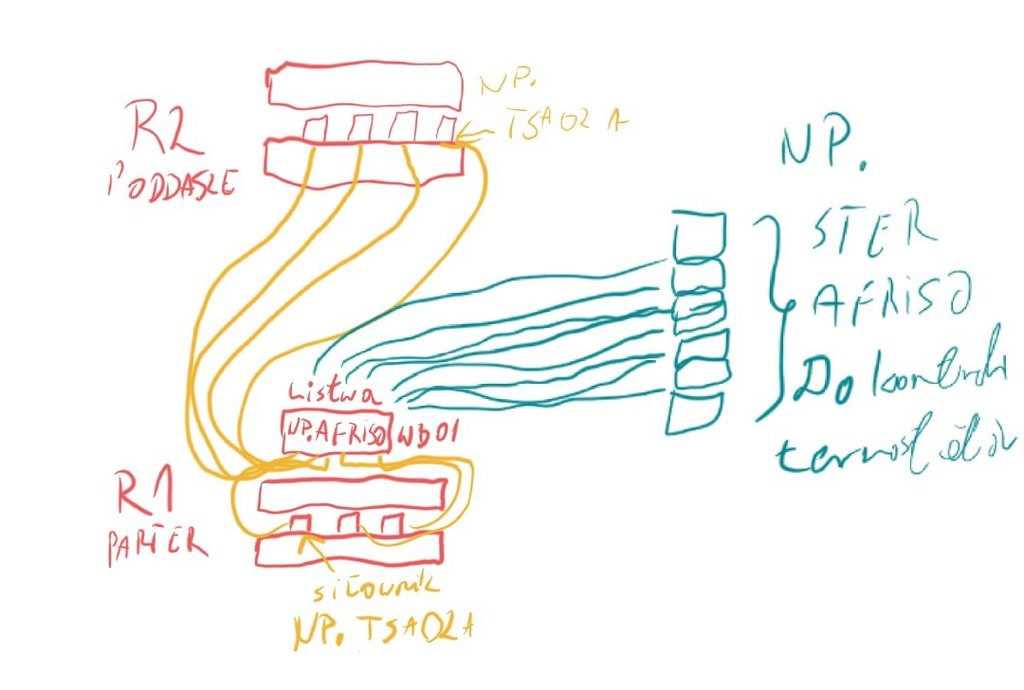 NP.
TSA02A
R2
PODDASZE
NP.
STER
AFRISO
Do kontroli
termostatów
Listwa
NP. AFRISO WB01
R1
PARTER
siłownik
NP. TSA02A